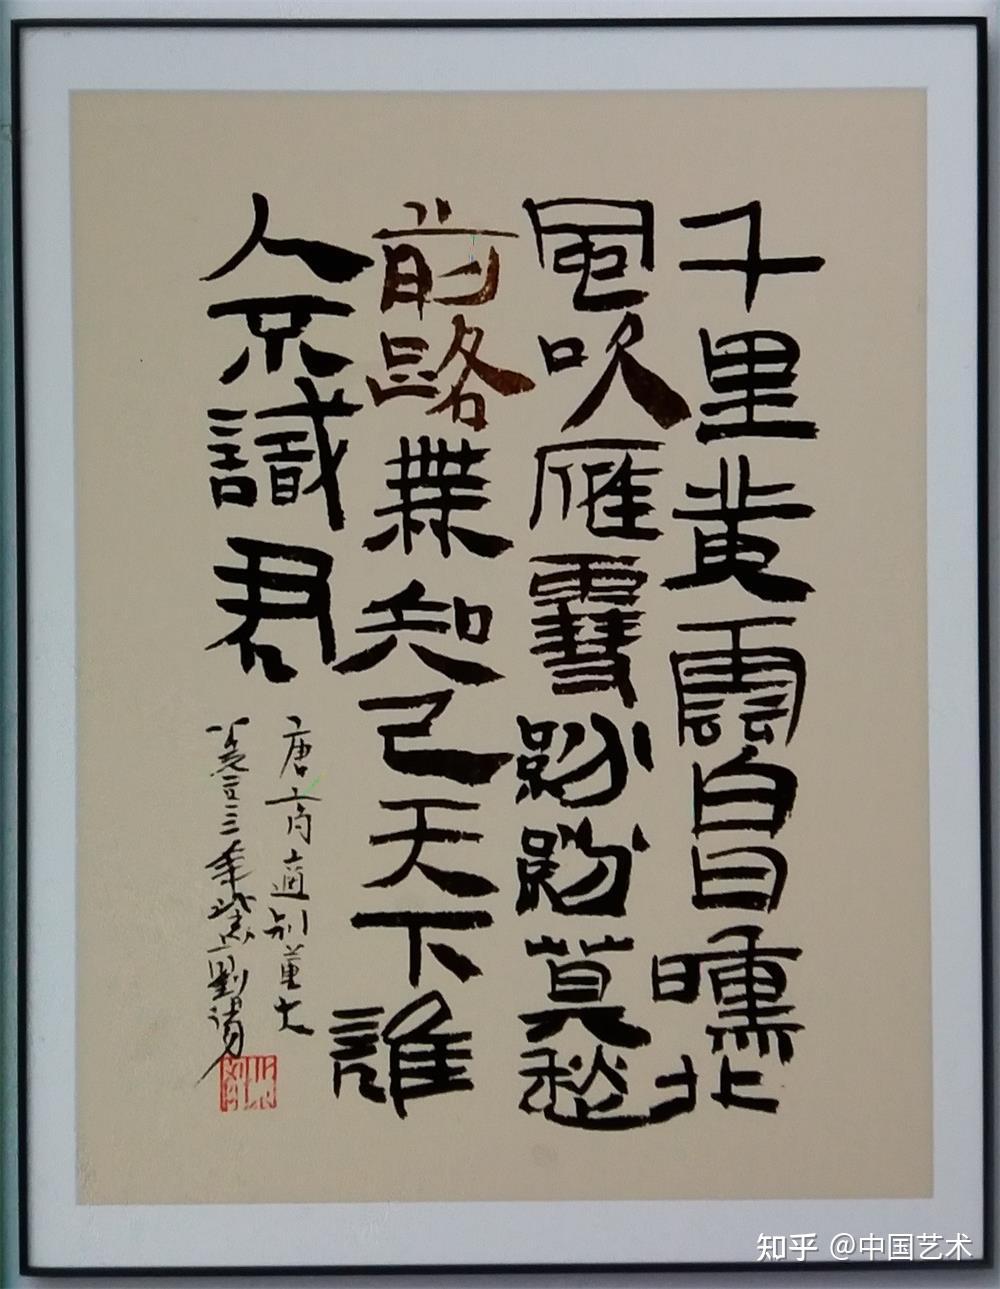 千里黄雲白日曛北
風吹雁雪紛紛莫愁
前路無知己天下誰
人不識君
唐高適別董大
三年 劉
知乎 @中国艺术